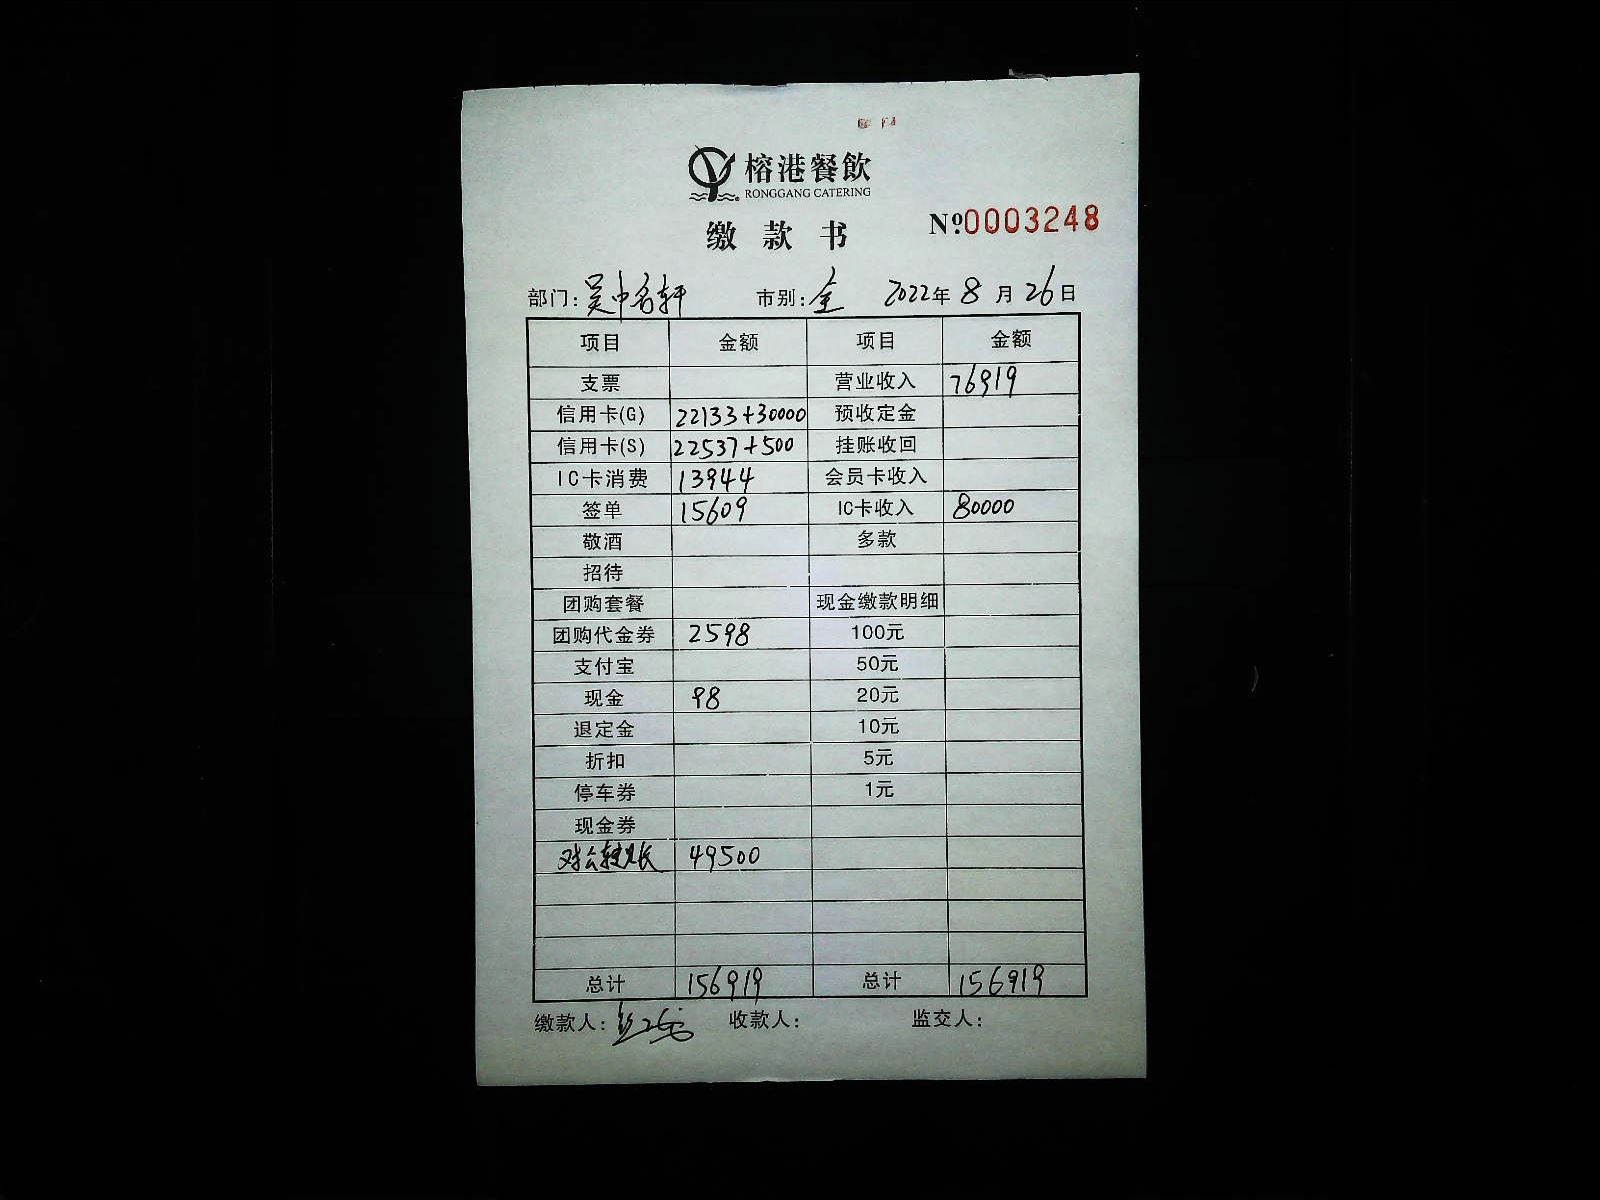 榕港餐飲
RONGGANG CATERING
缴款书
Nº0003248
部门：吴中名轩 市别：全 2022年8月26日
项目 金额 项目 金额
支票 营业收入 76919
信用卡(G) 22133+30000 预收定金
信用卡(S) 22537+500 挂账收回
IC卡消费 13944 会员卡收入
签单 15609 IC卡收入 80000
敬酒 多款
招待
团购套餐 现金缴款明细
团购代金券 2598 100元
支付宝 50元
现金 98 20元
退定金 10元
折扣 5元
停车券 1元
现金券
对公转账 49500
总计 156919 总计 156919
缴款人： 收款人： 监交人：